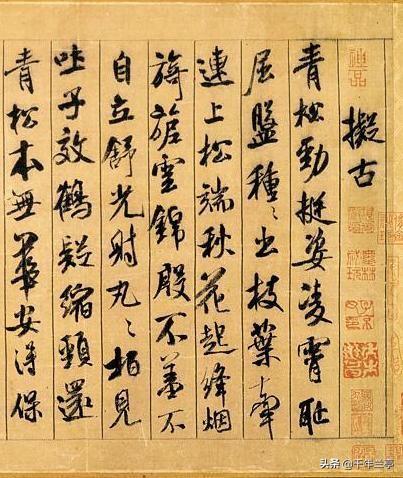 擬古
青松勁挺姿凌霄恥
屈盤種々出枝葉牽
連上松端秋花起絳烟
旖旎雲錦殷不羞不
自立舒光射丸々柏見
吐子效鶴疑縮頸還
青松本無華安得保
神品
头条 @千年兰亭